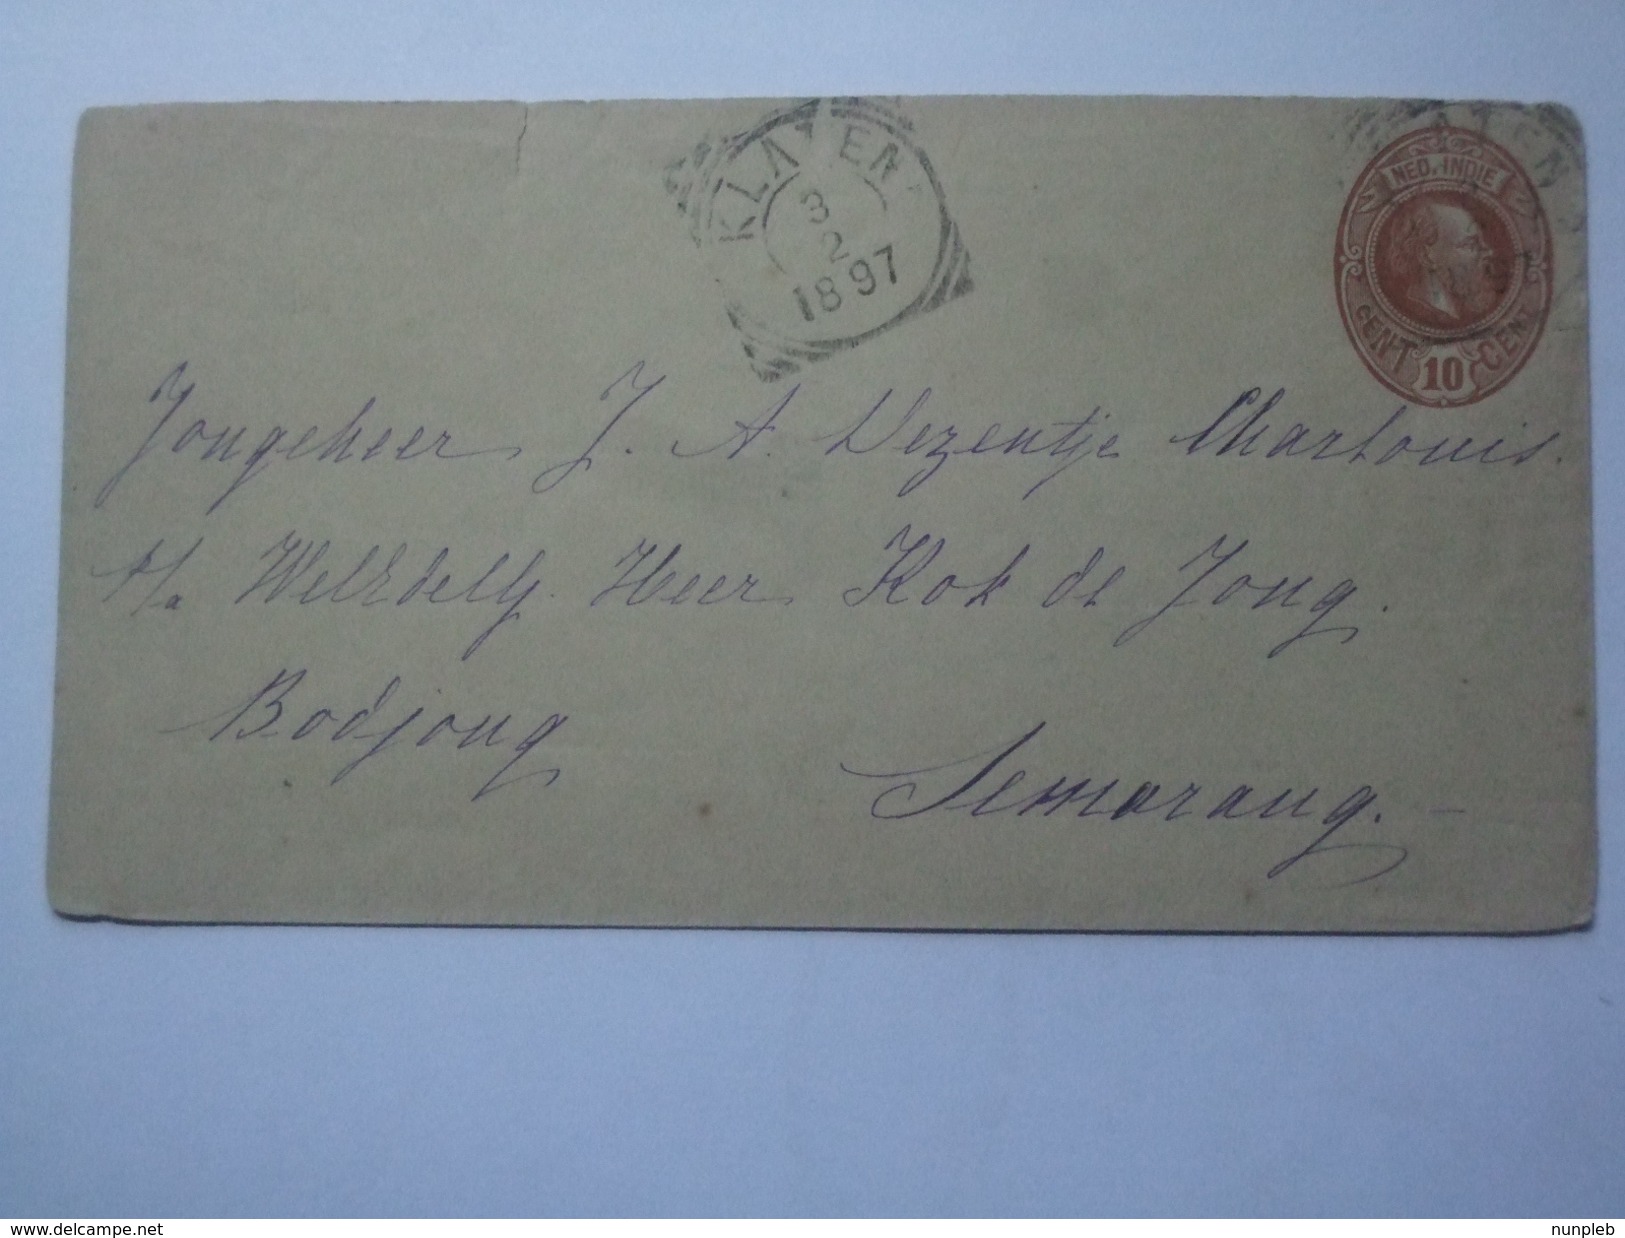 KLATEN
3
2
1897
ATEN
NED. INDIE
CENT 10 CENT
Jongeheer J. A. Dezentje Charlouis.
p/a Weledelg. Heer Kok de Jong.
Bodjong
Semarang. —
www.delcampe.net
nunpleb